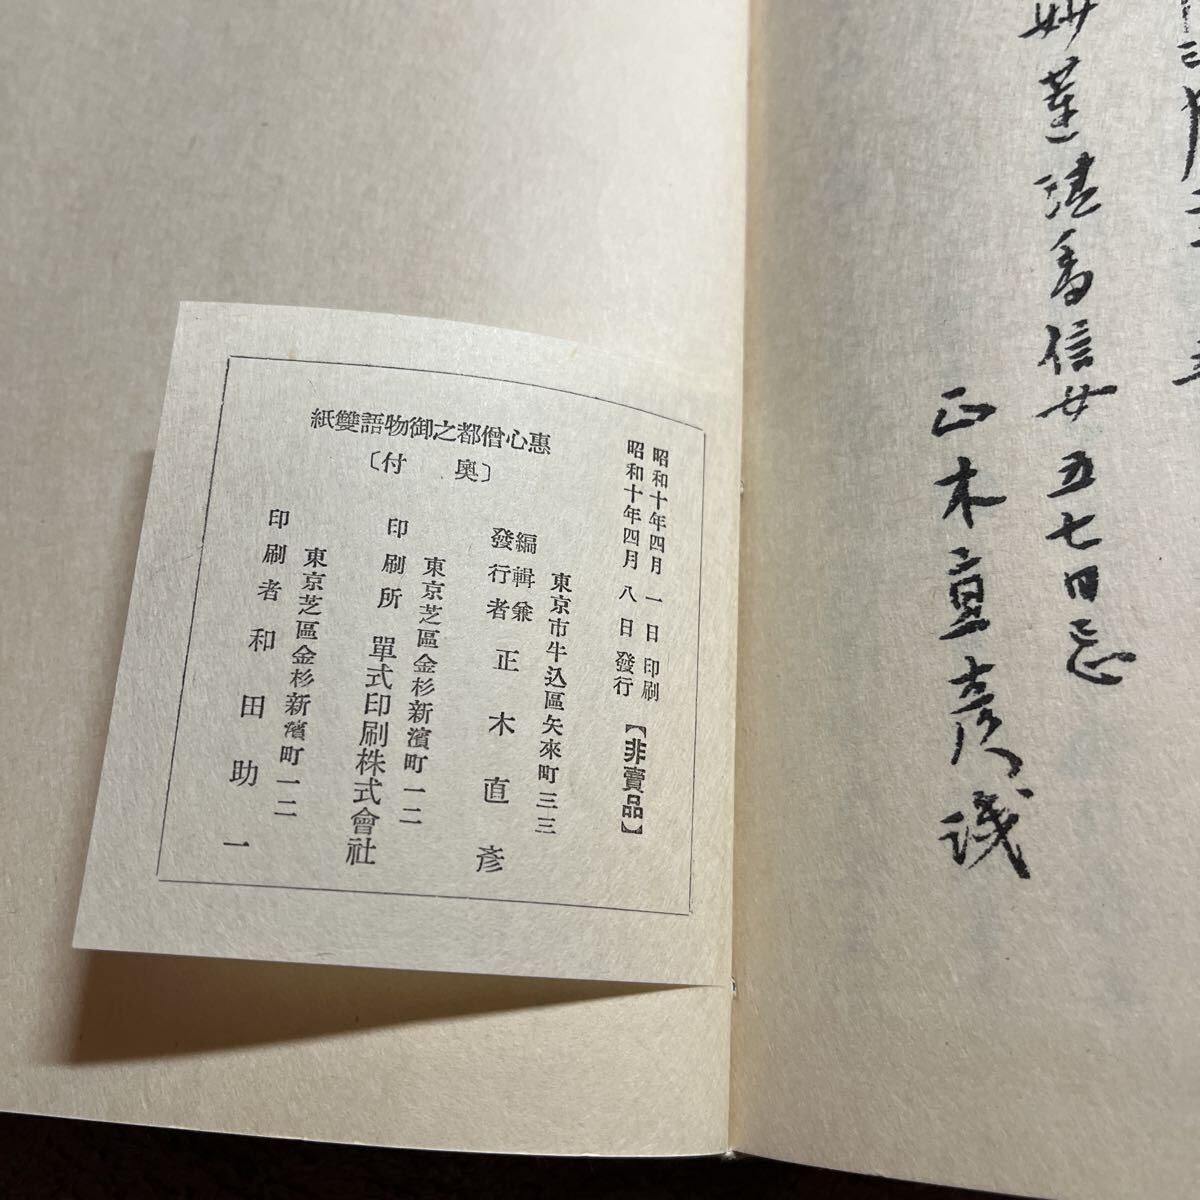 妙蓮清香信女五七日忌
正木直彦識
惠心僧都之御物語雙紙
〔奥付〕
昭和十年四月一日印刷
昭和十年四月八日發行
【非賣品】
東京市牛込區矢來町三三
編輯兼
發行者 正木直彥
東京芝區金杉新濱町一二
印刷所 單式印刷株式會社
東京芝區金杉新濱町一二
印刷者 和田助一